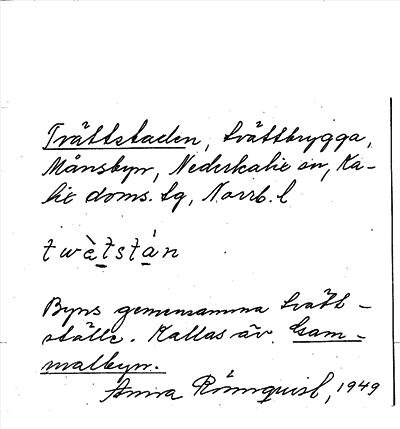 Tvättstaden, tvättbrygga,
Månsbyn, Nederkalix sn, Ka-
lix doms. tg, Norrb. l
twà̱tstá̱n
Byns gemensamma tvätt-
ställe. Kallas äv. Gam-
malbyn.
Anna Rönnquist, 1949